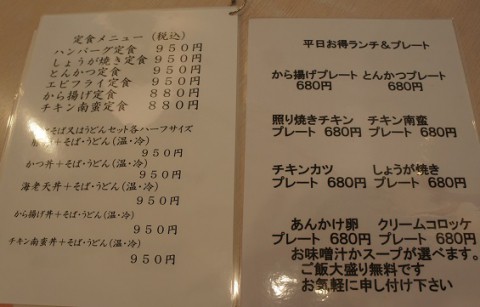 定食メニュー (税込)
ハンバーグ定食 950円
しょうが焼き定食 950円
とんかつ定食 950円
エビフライ定食 950円
から揚げ定食 880円
チキン南蛮定食 880円
そば又はうどんセット各ハーフサイズ
丼+そば・うどん(温・冷)
950円
かつ丼+そば・うどん(温・冷)
950円
海老天丼+そば・うどん(温・冷)
950円
から揚げ丼+そば・うどん(温・冷)
950円
チキン南蛮丼+そば・うどん(温・冷)
950円
平日お得ランチ&プレート
から揚げプレート とんかつプレート
680円 680円
照り焼きチキン チキン南蛮
プレート 680円 プレート 680円
チキンカツ しょうが焼き
プレート 680円 プレート 680円
あんかけ卵 クリームコロッケ
プレート 680円 プレート 680円
お味噌汁かスープが選べます。
ご飯大盛り無料です
お気軽に申し付け下さい